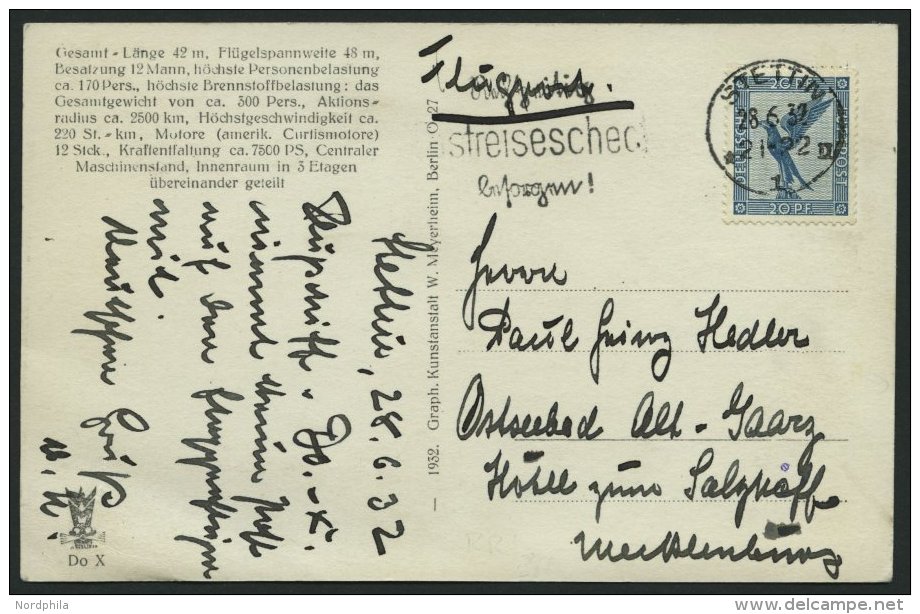 Gesamt-Länge 42 m, Flügelspannweite 48 m,
Besatzung 12 Mann, höchste Personenbelastung
ca. 170 Pers., höchste Brennstoffbelastung: das
Gesamtgewicht von ca. 300 Pers., Aktions-
radius ca. 2500 km, Höchstgeschwindigkeit ca.
220 St.-km, Motore (amerik. Curtismotore)
12 Stck., Kraftentfaltung ca. 7500 PS, Centraler
Maschinenstand, Innenraum in 3 Etagen
übereinander geteilt
Stettin, 28.6.32
Flugschiff Do.-X.
nimmt
auf den
mit.
Do X
1932. Graph. Kunstanstalt W. Meyerheim, Berlin O 27
streisescheck
besorgen!
STETTIN
28.6.32
21-22
1
20 PF
DEUTSCHE
POST
20 PF.
Herrn
Paul Heinz Hedler
Ostseebad Alt-Gaarz
Hotel zum Salzhaff
Mecklenburg
Nordphila
delcampe.net